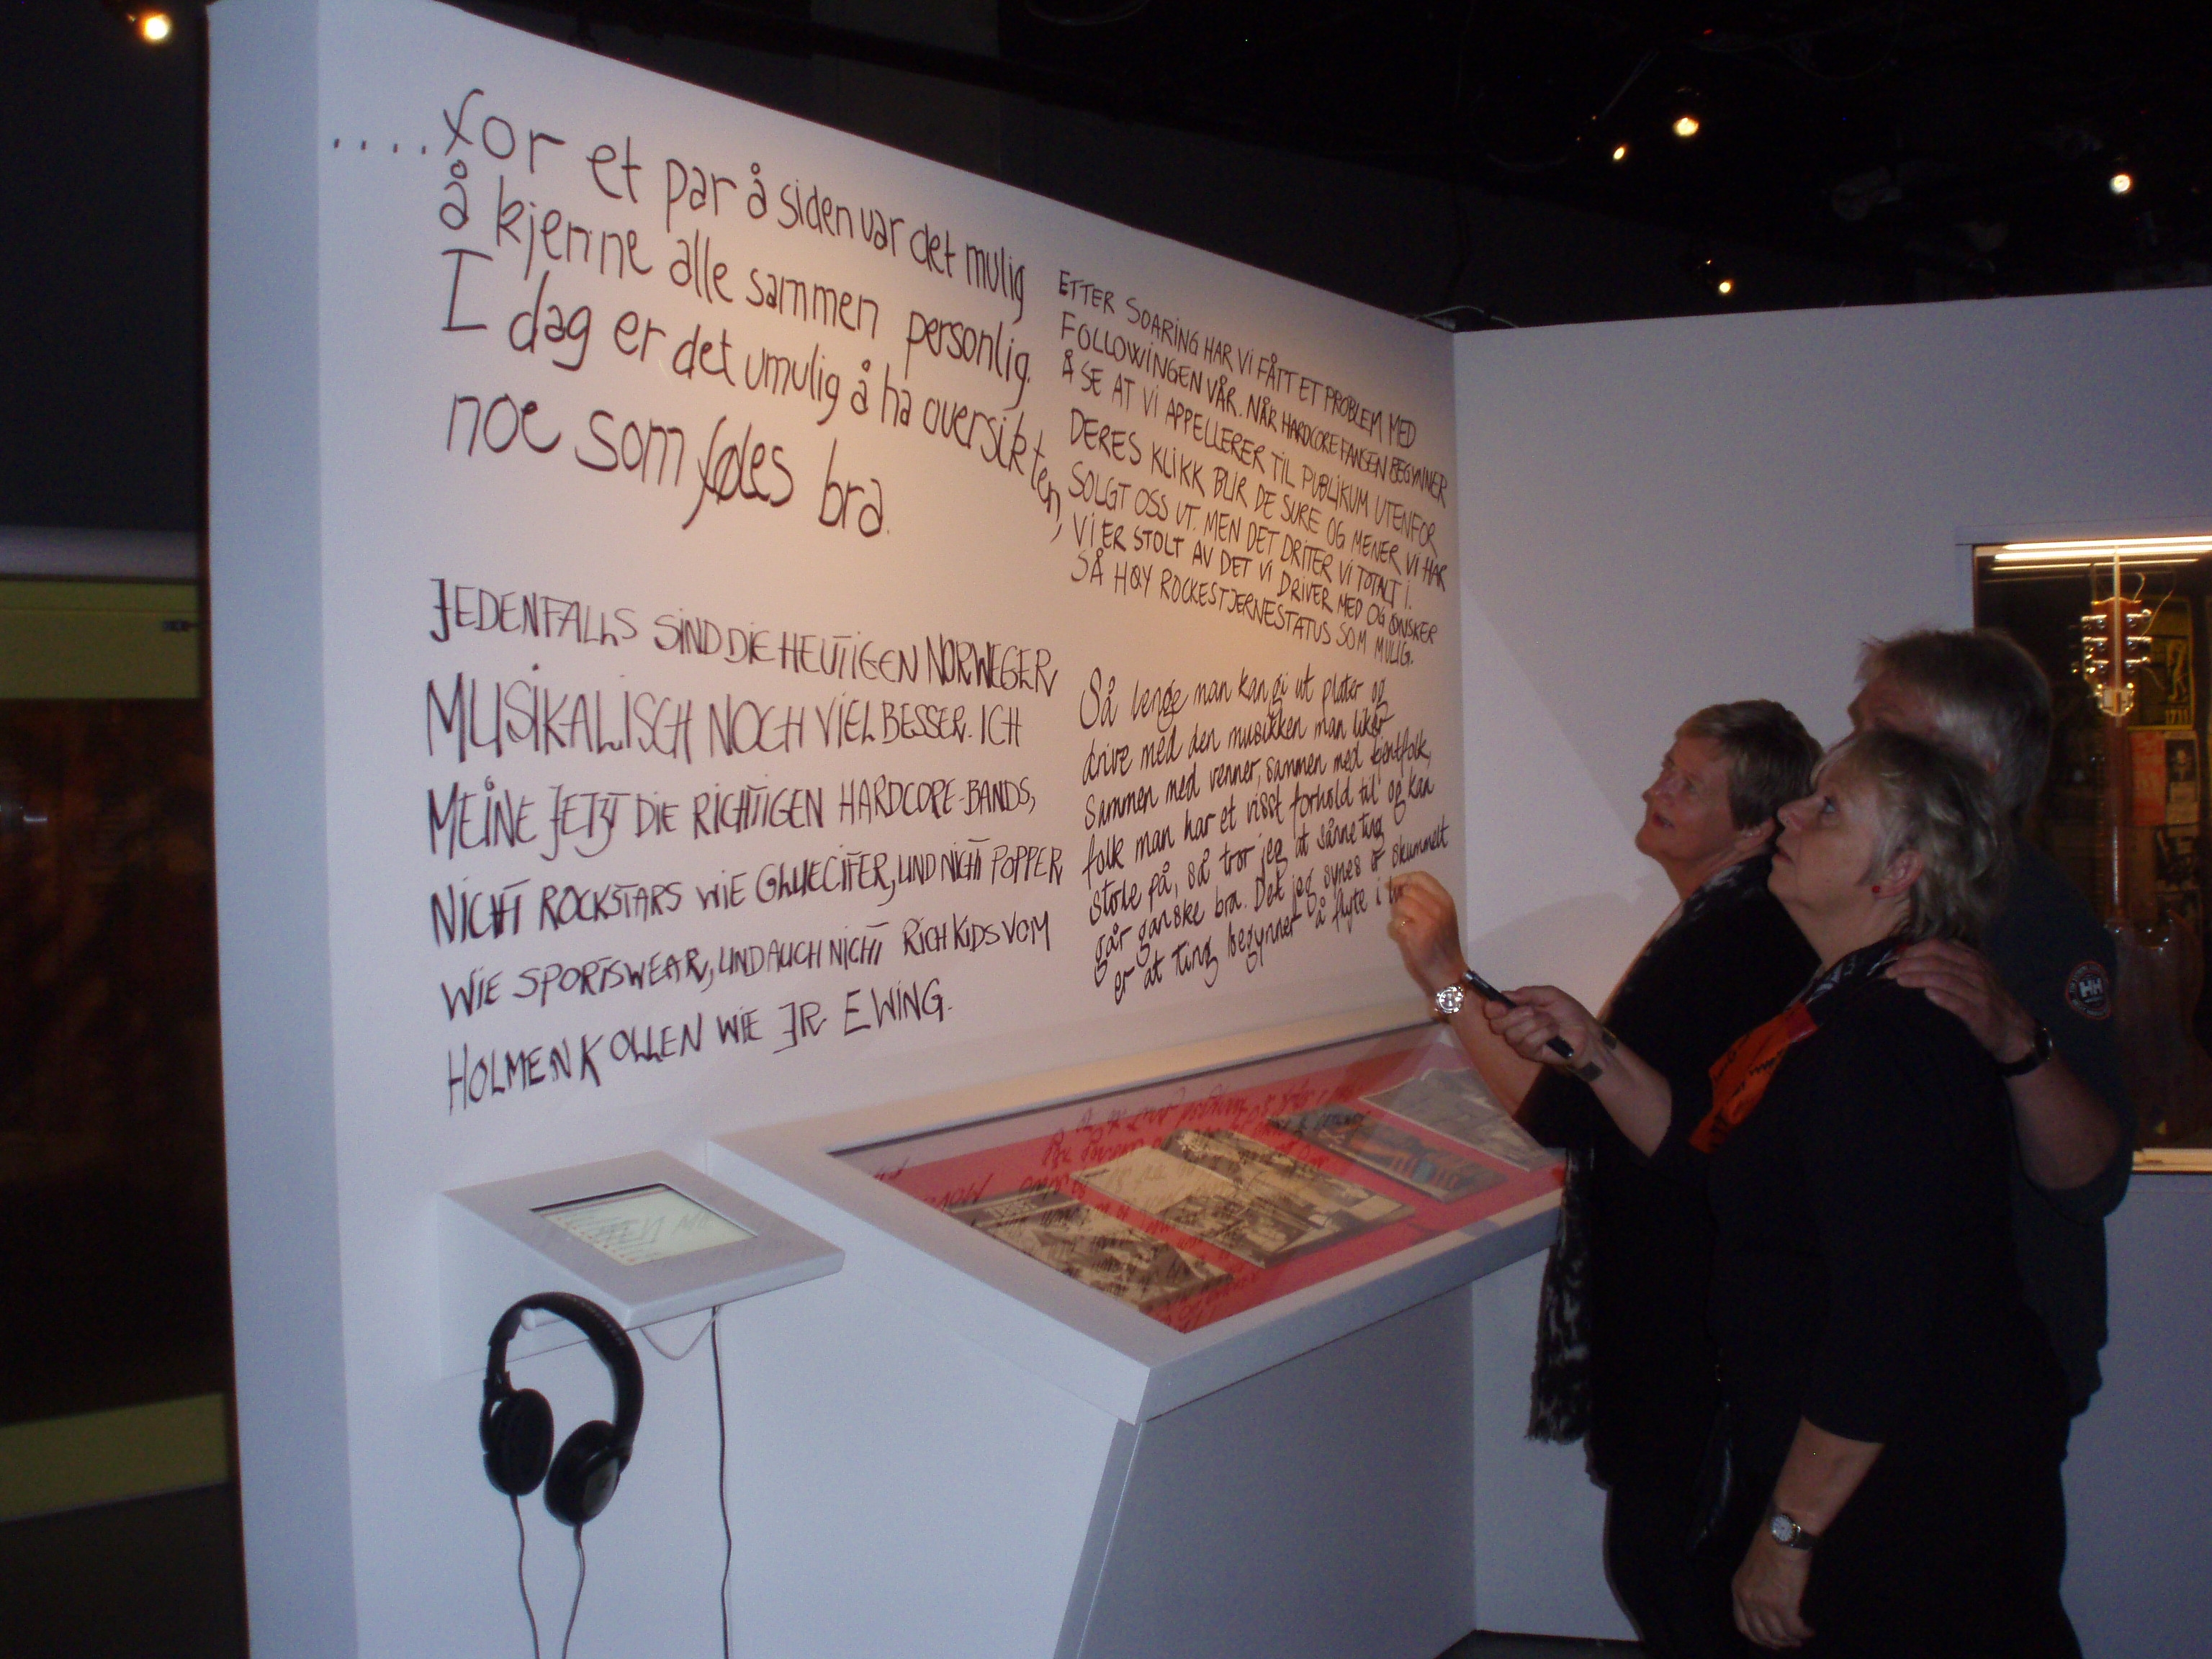 ....for et par å siden var det mulig
å kjenne alle sammen personlig.
I dag er det umulig å ha oversikten,
noe som føles bra.
JEDENFALLS SIND DIE HEUTIGEN NORWEGER
MUSIKALISCH NOCH VIEL BESSER. ICH
MEINE JETZT DIE RICHTIGEN HARDCORE-BANDS,
NICHT ROCKSTARS WIE GLUECIFER, UND NICHT POPPER
WIE SPORTSWEAR, UND AUCH NICHT RICH KIDS VOM
HOLMENKOLLEN WIE JR EWING.
ETTER SOARING HAR VI FÅTT ET PROBLEM MED
FOLLOWINGEN VÅR. NÅR HARDCORE FANSEN BEGYNNER
Å SE AT VI APPELLERER TIL PUBLIKUM UTENFOR
DERES KLIKK BLIR DE SURE OG MENER VI HAR
SOLGT OSS UT. MEN DET DRITER VI TOTALT I.
VI ER STOLT AV DET VI DRIVER MED OG ØNSKER
SÅ HØY ROCKESTJERNESTATUS SOM MULIG.
Så lenge man kan gi ut plater og
drive med den musikken man liker
sammen med venner, sammen med kjentfolk,
folk man har et visst forhold til og kan
stole på, så tror jeg at sånne ting
går ganske bra. Det jeg synes er skummelt
er at ting begynner å flyte i
HH